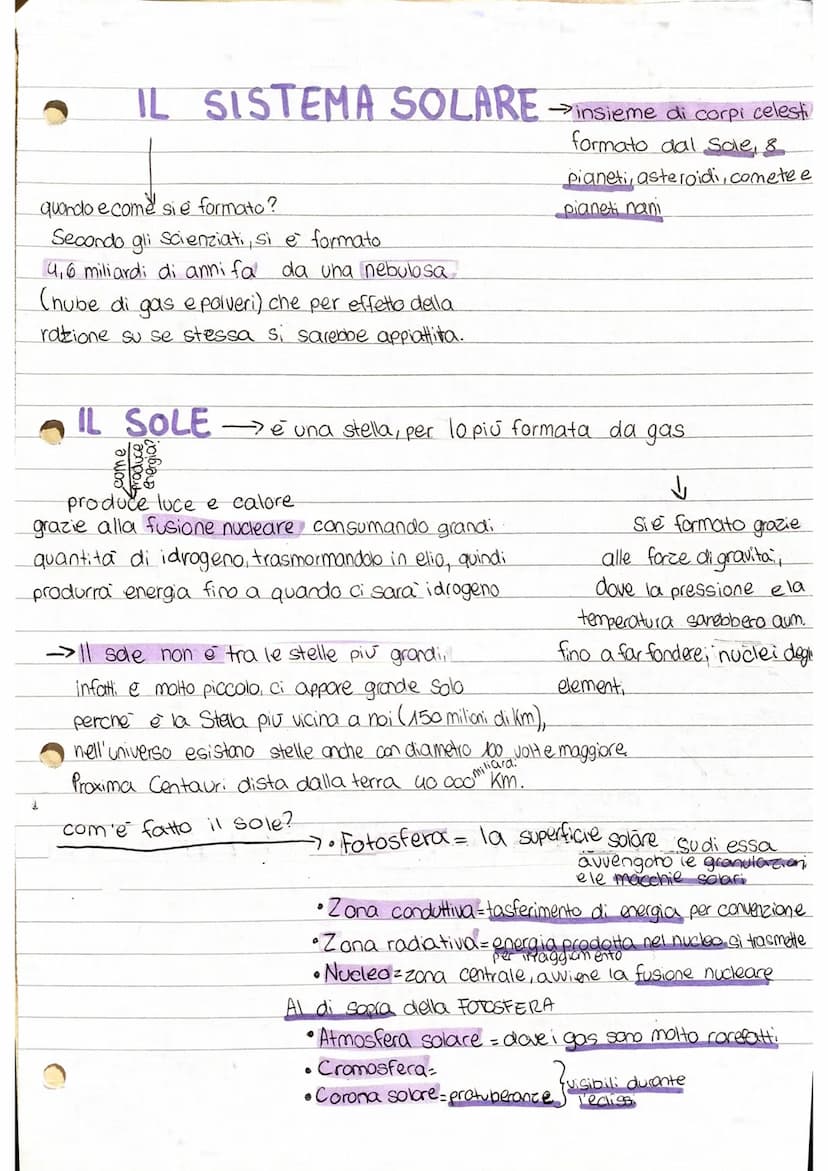 IL SISTEMA SOLARE → insieme di corpi celesti
formato dal Sole, 8
pianeti, asteroidi, comete e
pianeti nani
quando e come si è formato?
Secondo gli scienziati, si è formato
4,6 miliardi di anni fa da una nebulosa
(nube di gas e polveri) che per effetto della
ratione su se stessa si sarebbe appiattita.
IL SOLE → è una stella, per lo più formata da gas
come
produce
energia?
produce luce e calore
grazie alla fusione nucleare consumando grandi
quantità di idrogeno, trasmormandolo in elio, quindi
produrrà energia fino a quando ci sarà idrogeno
Si è formato grazie
alle forze di gravità,
dove la pressione e la
temperatura sarebbero aum.
fino a far fondere i nuclei degli
elementi
→ Il sole non è tra le stelle più grandi,
infatti è molto piccolo, ci appare grande solo
perché è la Stella più vicina a noi (150 milioni di Km),
nell'universo esistono stelle anche con diametro 100 volte maggiore.
Proxima Centauri dista dalla terra 40 000 miliardi Km.
com'è fatto il sole?
→ • Fotosfera = la superficie solare su di essa
avvengono le granulazioni
e le macchie solari
• Zona conduttiva = tasferimento di energia per convenzione
• Zona radiativa = energia prodotta nel nucleo si trasmette
per irraggiamento
• Nucleo = zona centrale, avviene la fusione nucleare
Al di sopra della FOTOSFERA
• Atmosfera solare = dove i gas sono molto rarefatti
• Cromosfera =
• Corona solare = protuberanze } visibili durante
l'eclissi